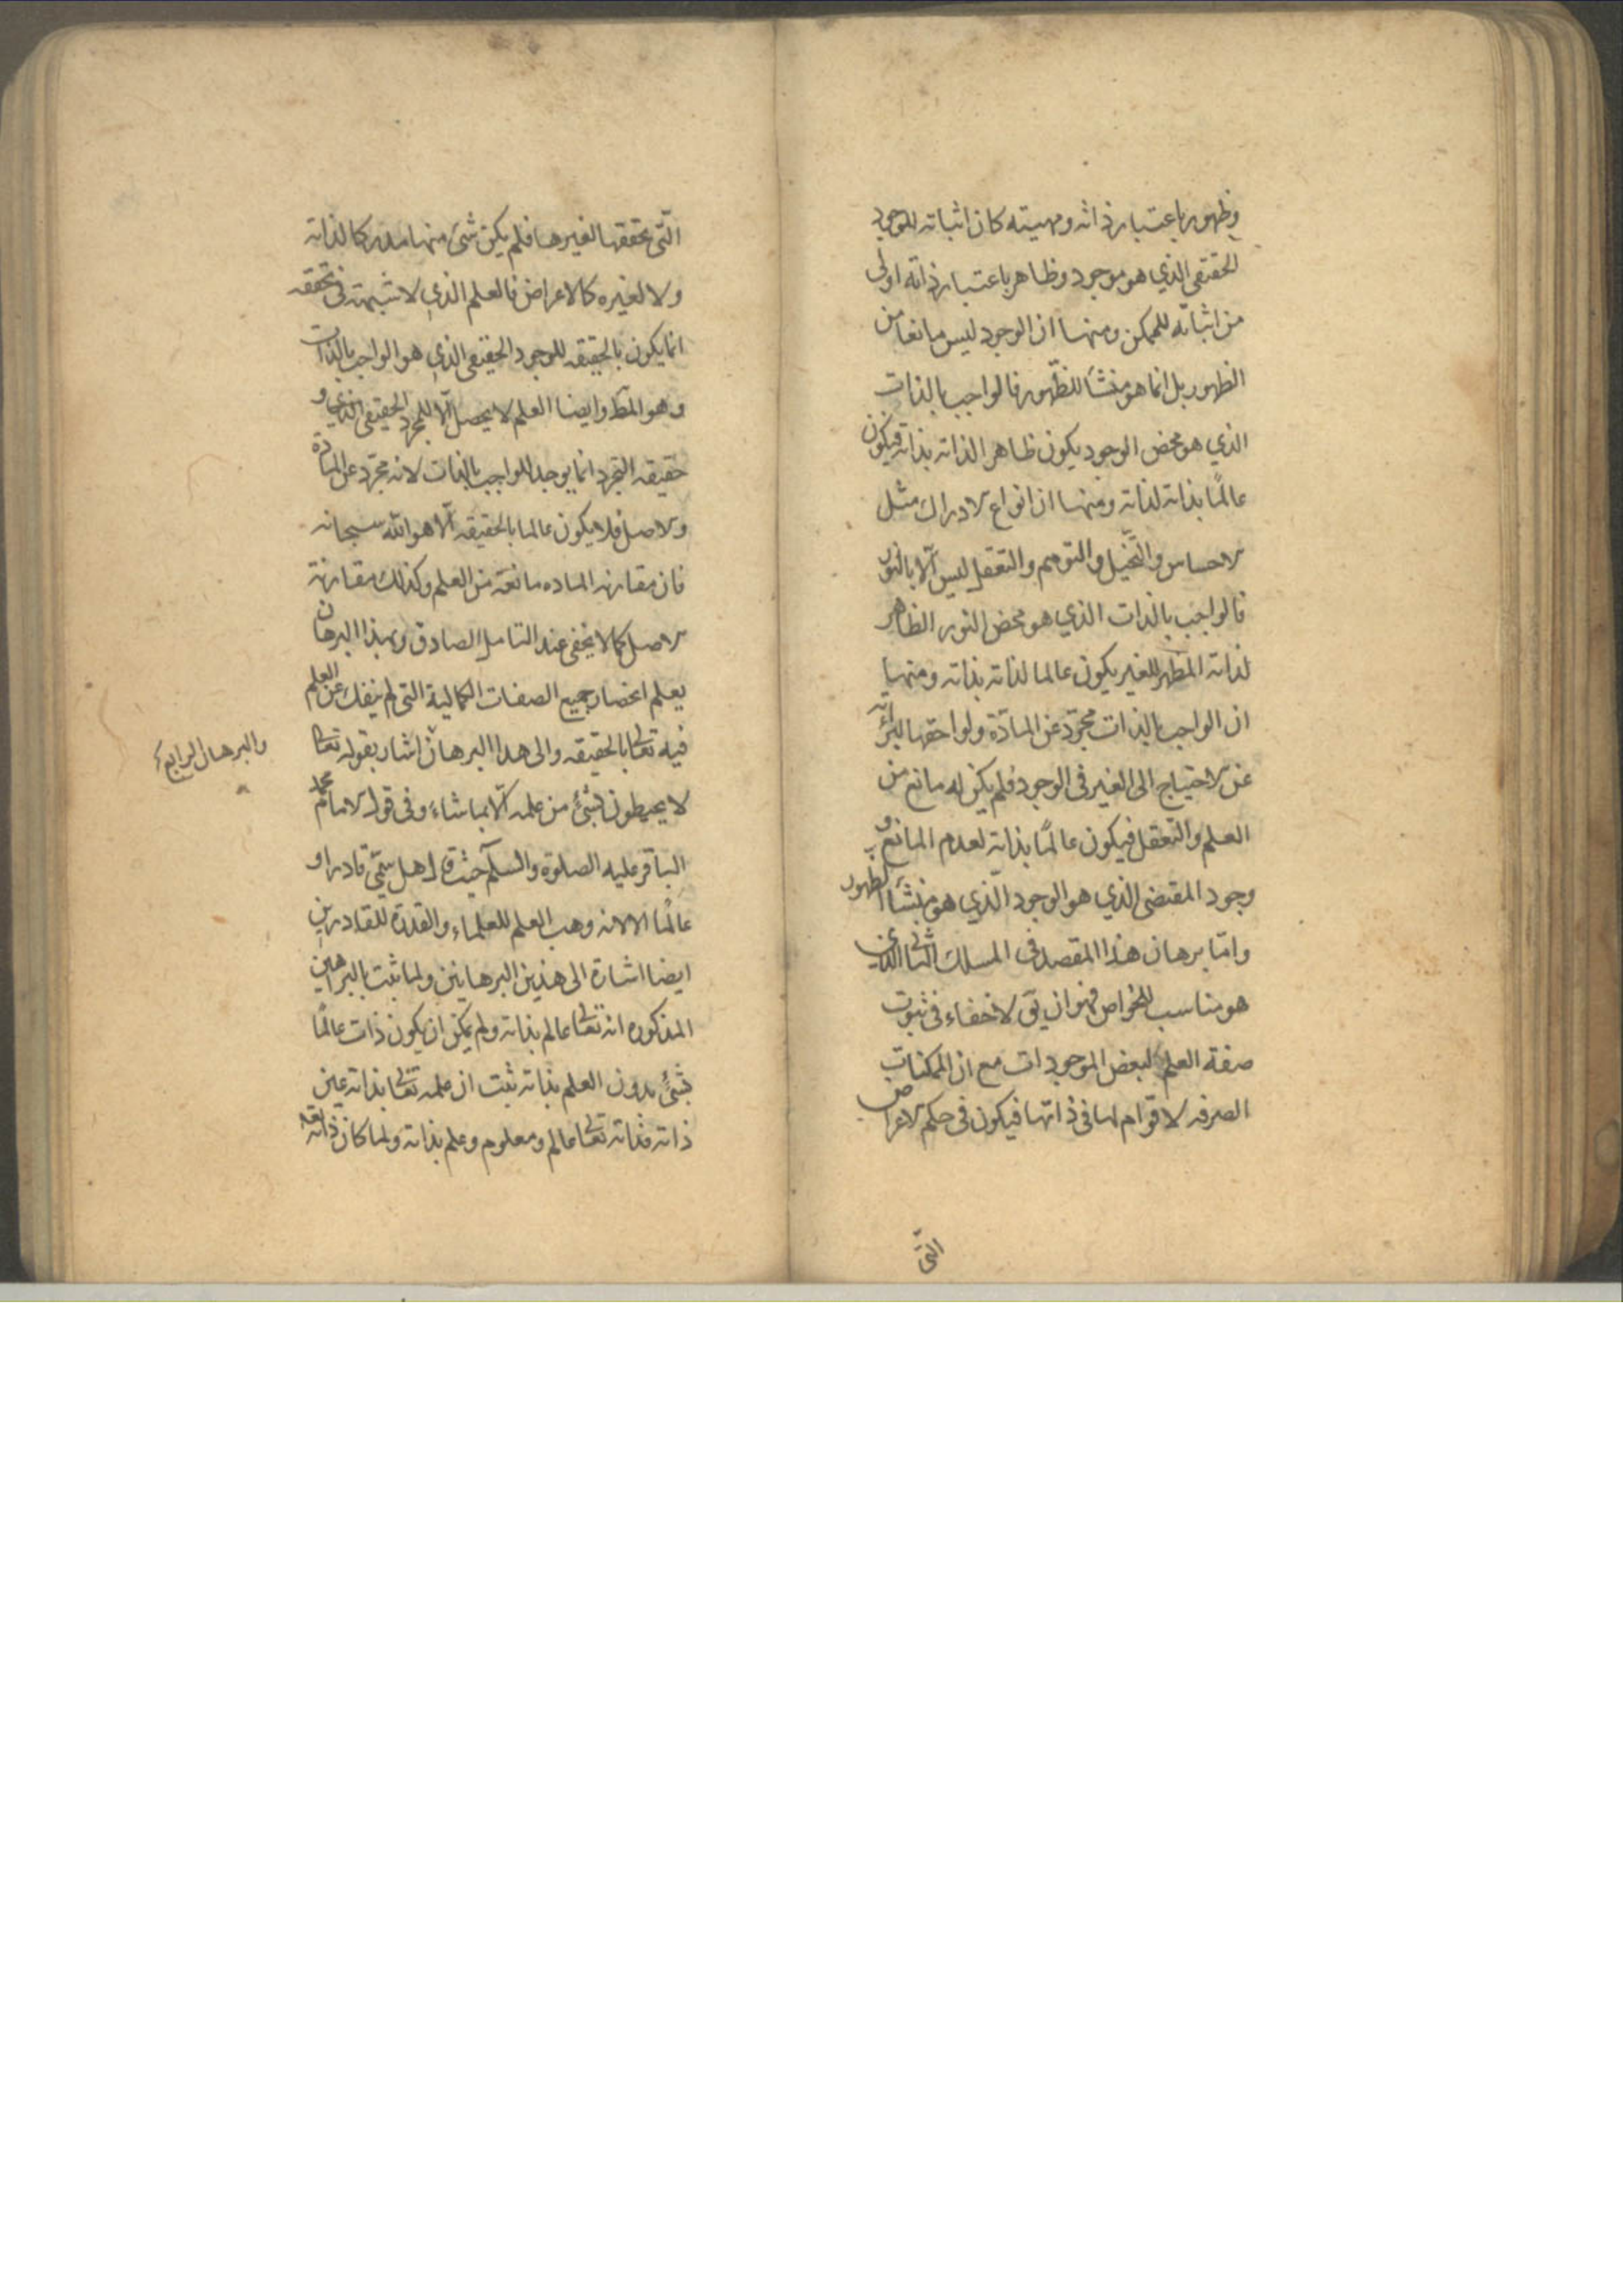 وظهور باعتبار ذاته ومهيته كان اثباته للوجود
الحقيقي الذي هو موجود وظاهر باعتبار ذاته اولى
من اثباته للممكن ومنها ان الوجود ليس مانعا من
الظهور بل انما هو منشأ للظّهور فالواجب بالذات
الذي هو محض الوجود يكون ظاهر الذاته بذاته فيكون
عالمًا بذاته لذاته ومنها ان انواع الادراك مثل
الاحساس والتّخيل والتوهم والتعقل ليس الّا بالنّور
فالواجب بالذات الذي هو محض النور الظاهر
لذاته المظهر للغير يكون عالما لذاته بذاته ومنها
ان الواجب بالذات مجرّد عن المادّة ولواحقها
عن الاحتياج الى الغير في الوجود فلم يكن له مانع من
العلم والتّعقل فيكون عالمًا بذاته لعدم المانع و
وجود المقتضى الذي هو الوجود الّذي هو منشأ الظهور
وامّا برهان هذا المقصد في المسلك الثاني الذي
هو مناسب للخواص فهو ان يق لا خفاء في ثبوت
صفة العلم لبعض الموجودات مع ان الممكنات
الصرفه لا قوام لها في ذاتها فيكون في حكم الاعراض
التّى
الّتى تحققها لغيرها فلم يكن شئ منها مدركا لذاته
ولا لغيره كالاعراض فالعلم الذي لا شبهة في تحققه
انما يكون بالحقيقه للوجود الحقيقى الذي هو الواجب بالذات
وهو المط وايضا العلم لا يحصل الّا للمجرد الحقيقى الذي و
حقيقه التجرد انما يوجد للواجب بالذات لانه مجرّد عن المادّة
والاصل فلا يكون عالما بالحقيقه الّا هو الله سبحانه
فان مقارنه الماده مانعة من العلم وكذلك مقارنة
الاصل كما لا يخفى عند التامل الصادق وبهذا البرهان
يعلم انحصار جميع الصفات الكمالية التى لم ينفك عن العلم
فيه تعالى بالحقيقه والى هذا البرهان اشار بقوله تعالى
والبرهان الرابع
لا يحيطون بشئ من علمه الّا بما شاء وفى قول الامام محمد
الباقر عليه الصلوة والسلم حيث قال هل سمّى قادرا و
عالمًا الا لانه وهب العلم للعلماء والقدرة للقادرين
ايضا اشارة الى هذين البرهانين ولما ثبت بالبرهين
المذكوره انه تعالى عالم بذاته ولم يمكن ان يكون ذات عالمًا
بشئ بدون العلم بذاته ثبت ان علمه تعالى بذاته عين
ذاته فذاته تعالى عالم ومعلوم وعلم بذاته ولما كان ذاته